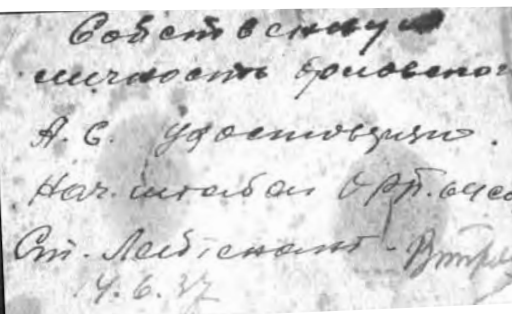 Собственную
личность
А. С. удостоверяю.
Нач. штаба
Ст. Лейтенант -
14. 6. 37